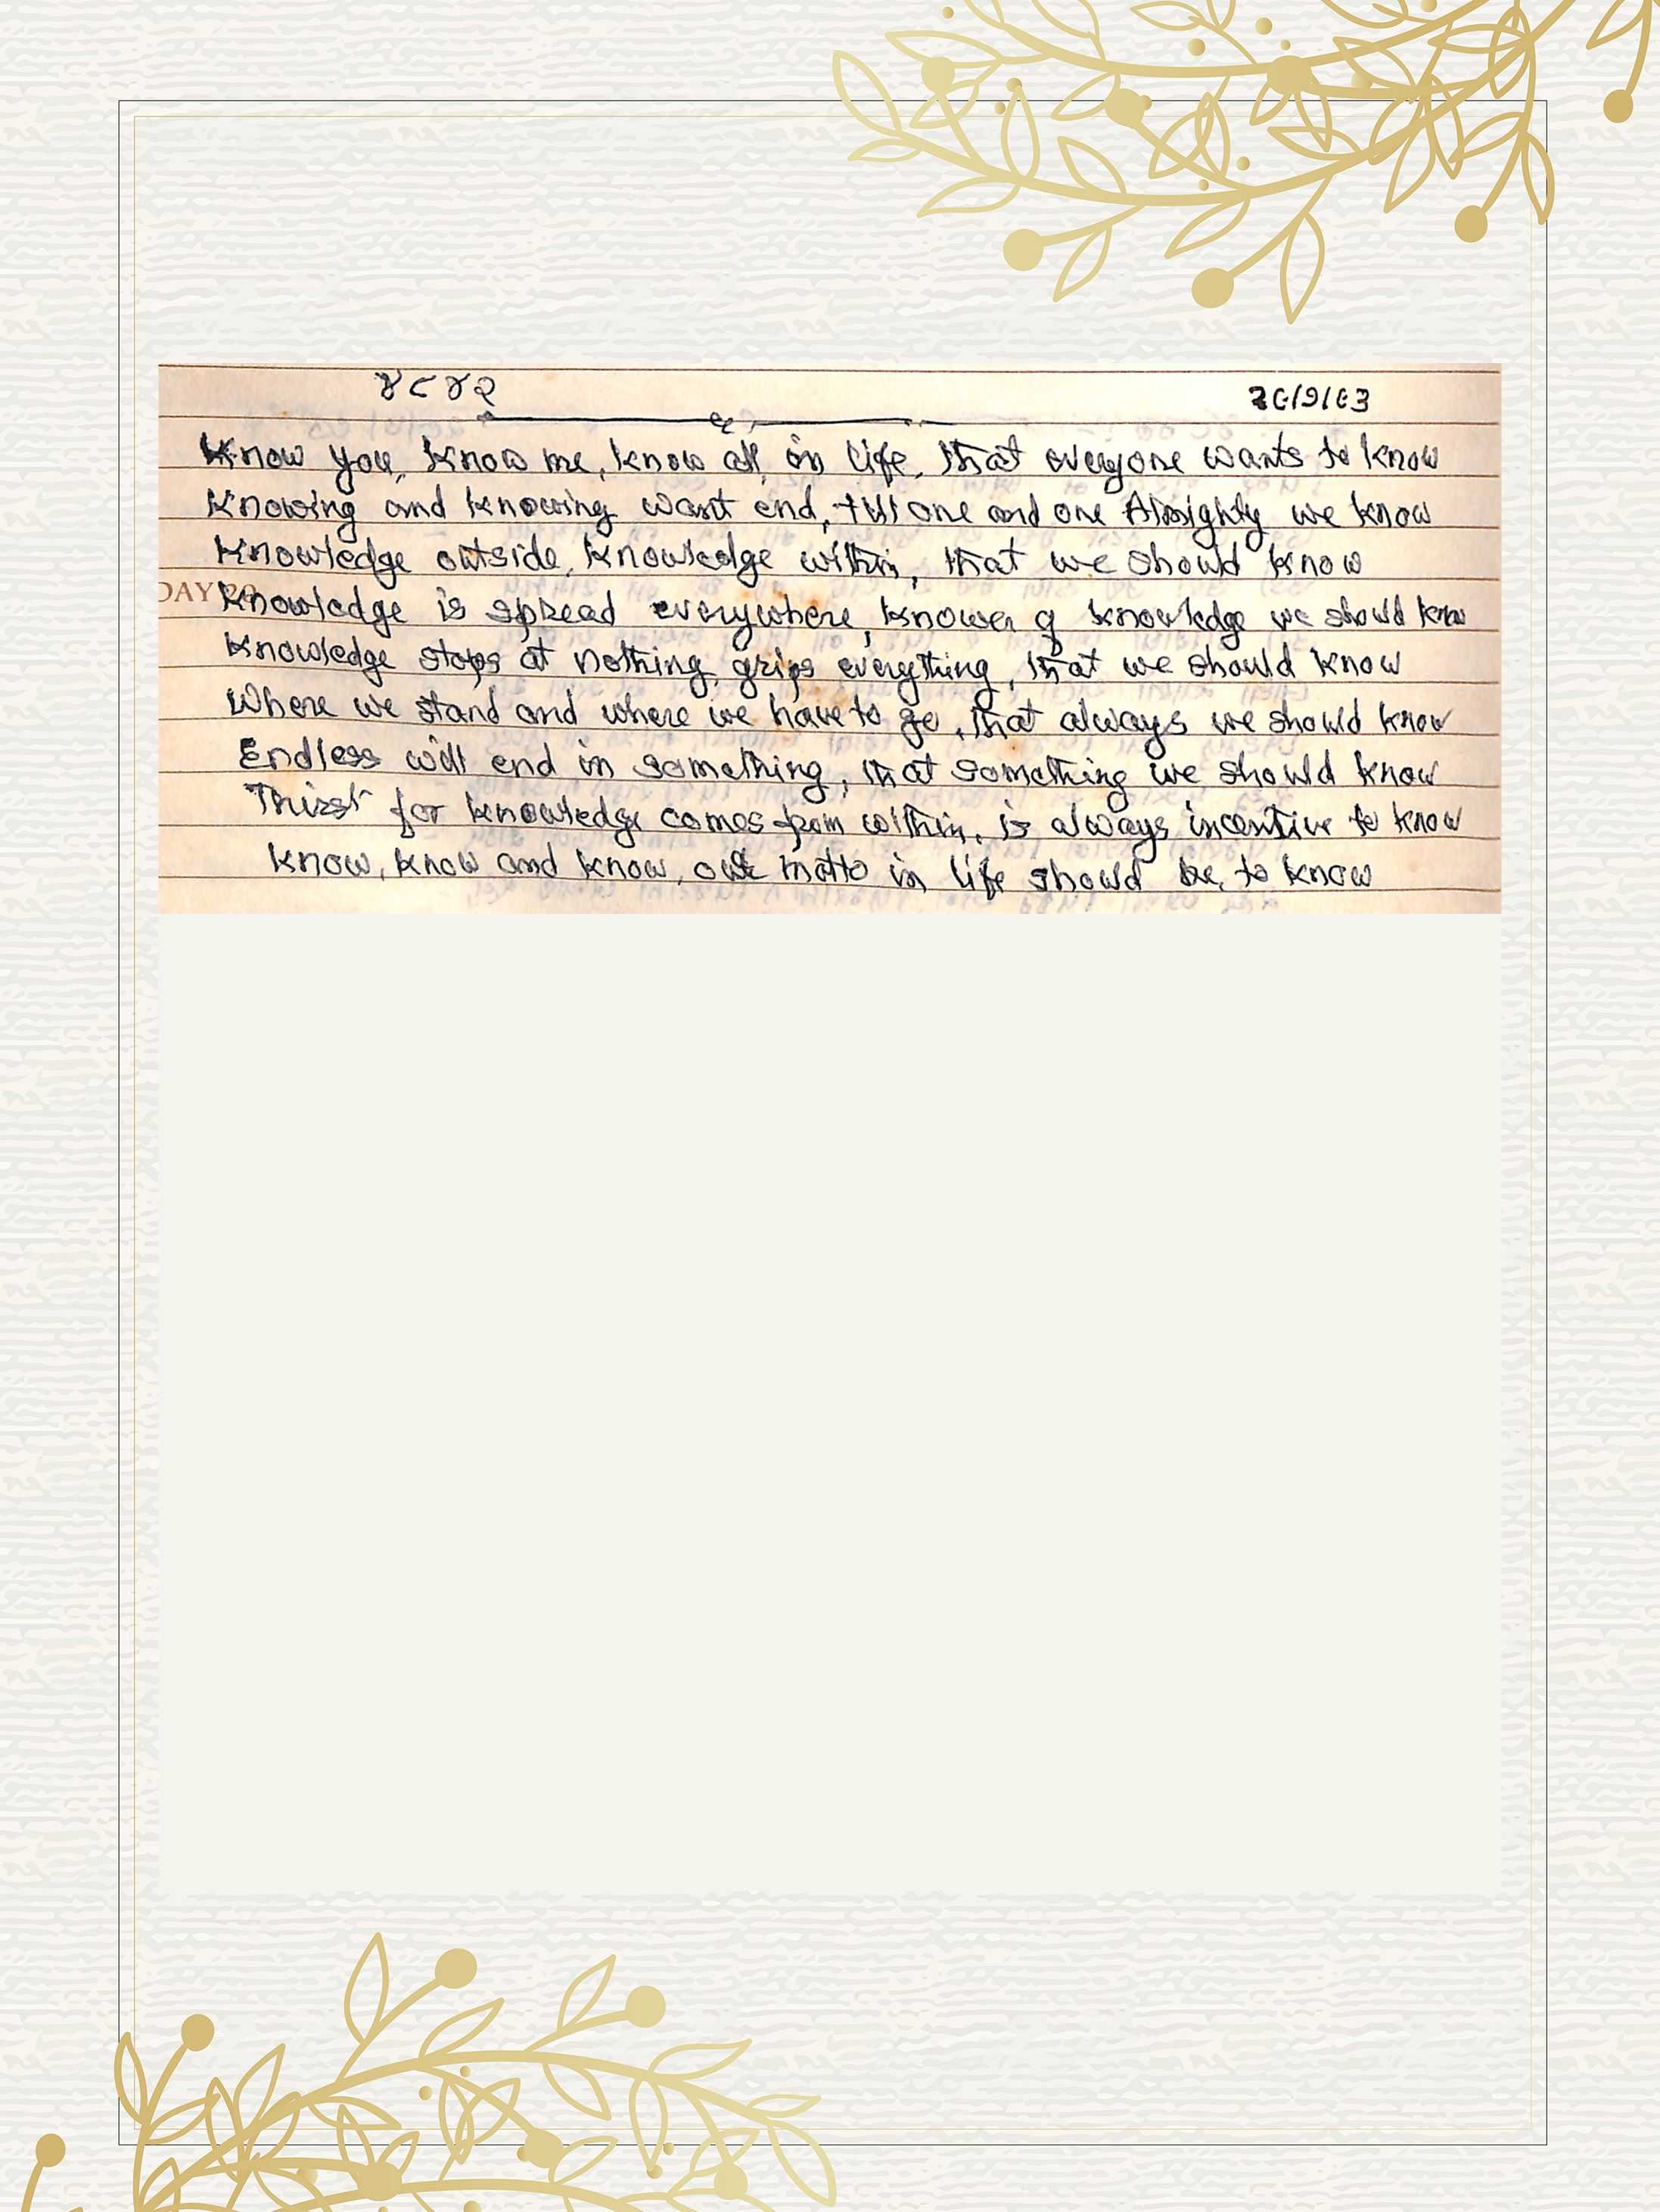 ४८४२
Know you, know me, know all, in life, that everyone wants to know
Knowing and knowing want end, till one and one Almighty we know
Knowledge outside, knowledge within, that we should know
DAY
Knowledge is spread everywhere, knower of knowledge we should know
Knowledge stops at nothing, grips everything, that we should know
Where we stand and where we have to go, that always we should know
Endless will end in something, that something we should know
Thirst for knowledge comes from within, is always incentive to know
Know, know and know, our motto in life should be, to know